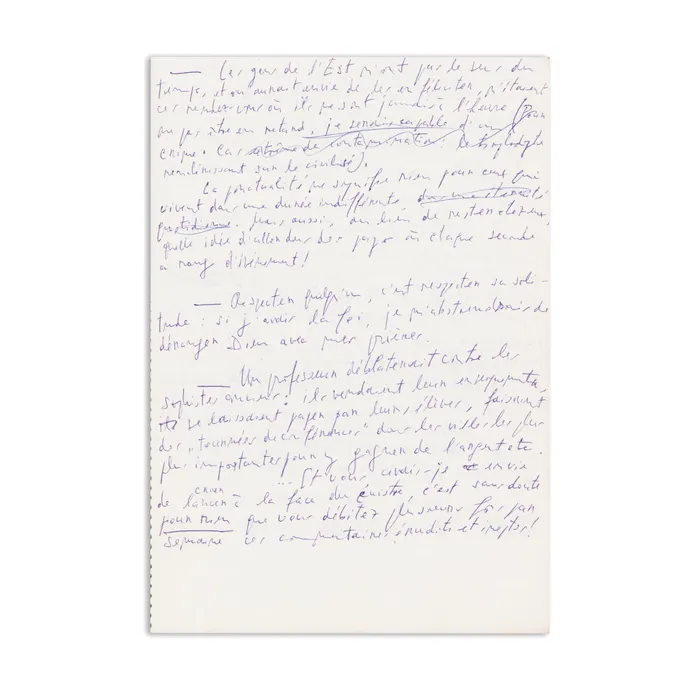 — Les gens de l'Est n'ont pas le sens du
temps, et on aurait envie de les en féliciter, n'étaient
ces rendez-vous où ils ne sont jamais à l'heure (Pour
ne pas être en retard, je serais capable d'un
crime. Car de contamination: le troglodyte
sur le civilisé).
La ponctualité ne signifie rien pour ceux qui
vivent dans une durée indifférente, dans une éternité
quotidienne. Mais, aussi, au lieu de rester chez eux,
quelle idée d'aller dans des pays où chaque seconde
a rang d'événement!
— Respecter quelqu'un, c'est respecter sa soli-
tude: si j'avais la foi, je m'abstiendrais de
déranger Dieu avec mes prières.
— Un professeur déblatérait contre les
sophistes anciens: ils vendaient leur enseignement,
ils se laissaient payer par leurs élèves, faisaient
des "tournées de conférences" dans les villes les plus
plus importantes pour y gagner de l'argent etc.
... Et vous, avais-je envie
de crier à la face du cuistre, c'est sans doute
pour rien que vous débitez plusieurs fois par
semaine ces commentaires érudits et ineptes!